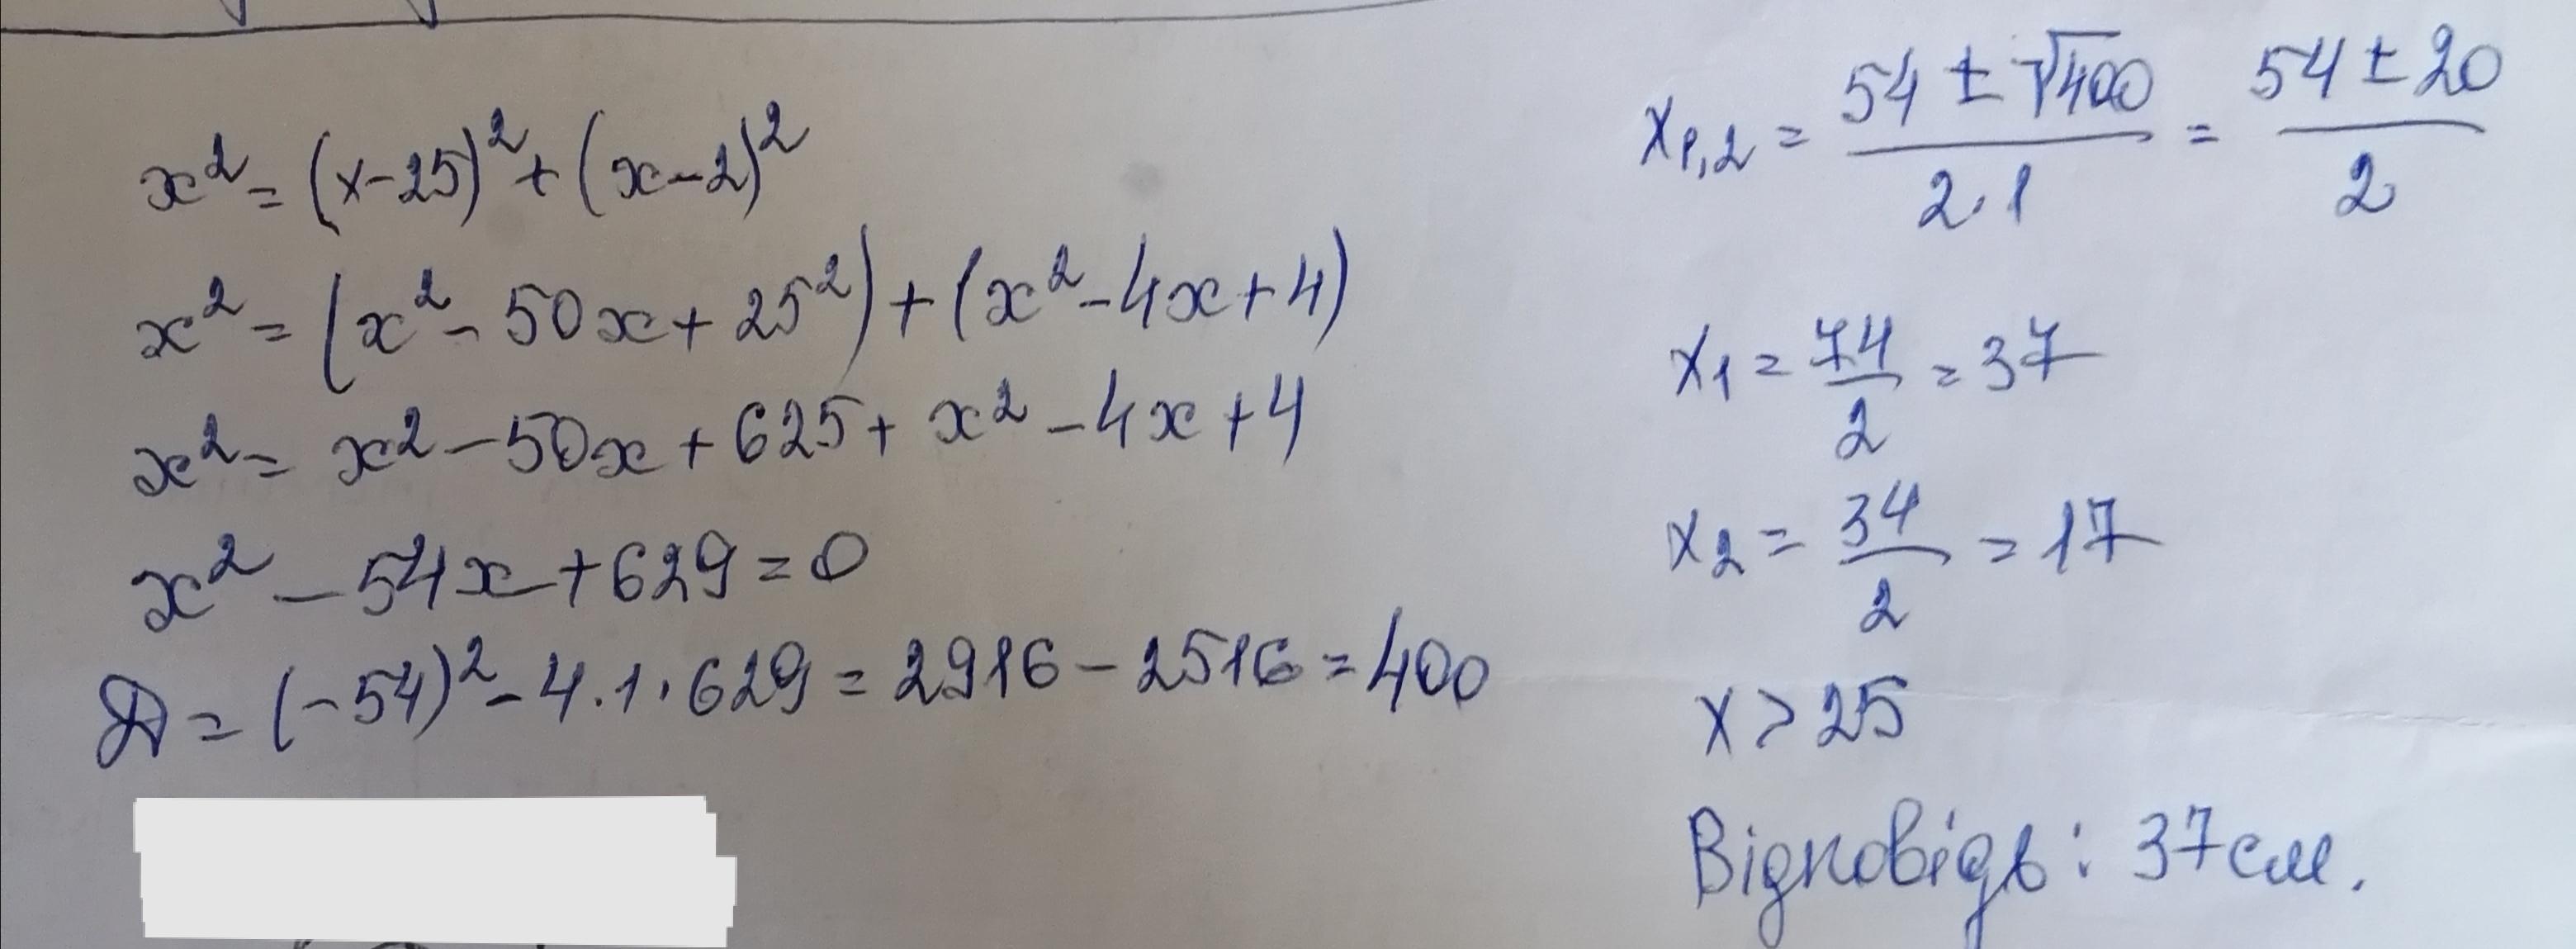 x² = (x-25)² + (x-2)²
x² = (x² - 50x + 25²) + (x² - 4x + 4)
x² = x² - 50x + 625 + x² - 4x + 4
x² - 54x + 629 = 0
D = (-54)² - 4·1·629 = 2916 - 2516 = 400
x₁,₂ = (54 ± √400)/(2·1) = (54 ± 20)/2
x₁ = 74/2 = 37
x₂ = 34/2 = 17
x > 25
Відповідь: 37см.